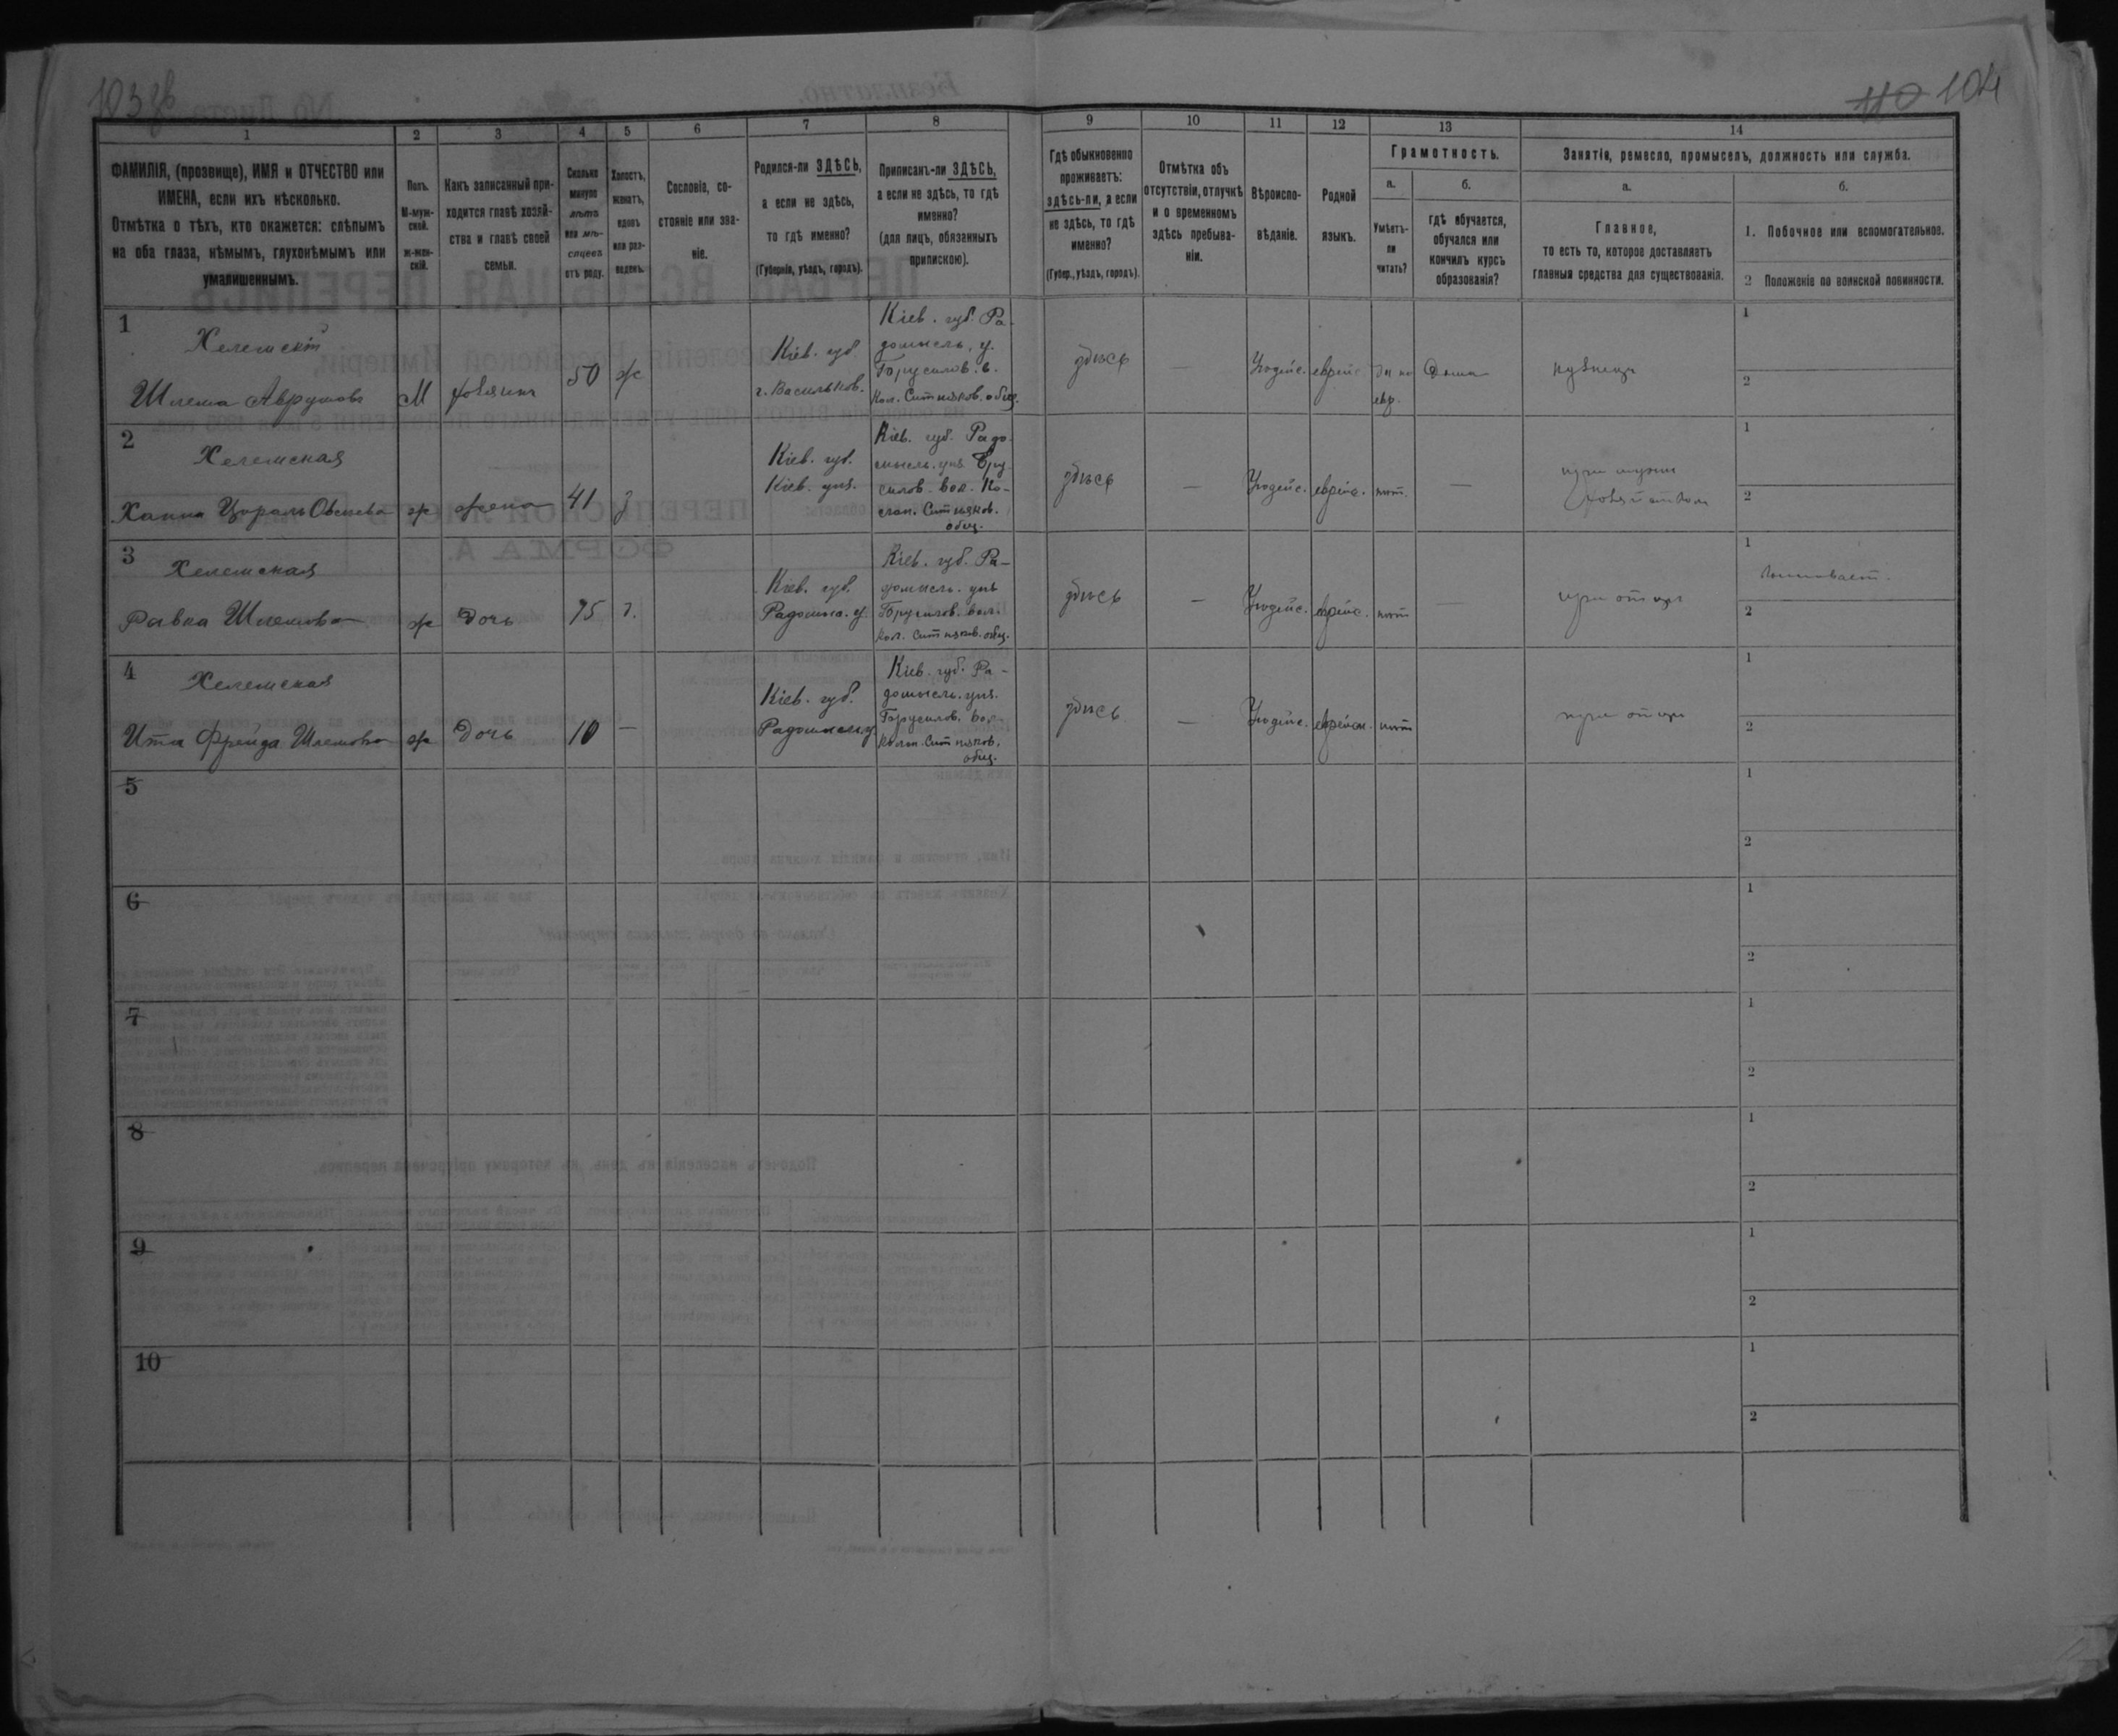 103 об
110 104
1
2
3
4
5
6
7
8
9
10
11
12
13
14
ФАМИЛІЯ, (прозвище), ИМЯ и ОТЧЕСТВО или
ИМЕНА, если ихъ нѣсколько.
Отмѣтка о тѣхъ, кто окажется: слѣпымъ
на оба глаза, нѣмымъ, глухонѣмымъ или
умалишеннымъ.
Полъ.
М-муж-
ской.
ж-жен-
скій.
Какъ записанный при-
ходится главѣ хозяй-
ства и главѣ своей
семьи.
Сколько
минуло
лѣтъ
или мѣ-
сяцевъ
отъ роду.
Холостъ,
женатъ,
вдовъ
или раз-
веденъ.
Сословіе, со-
стояніе или зва-
ніе.
Родился-ли ЗДѢСЬ,
а если не здѣсь,
то гдѣ именно?
(Губернія, уѣздъ, городъ).
Приписанъ-ли ЗДѢСЬ,
а если не здѣсь, то гдѣ
именно?
(для лицъ, обязанныхъ
припискою).
Гдѣ обыкновенно
проживаетъ:
здѣсь-ли, а если
не здѣсь, то гдѣ
именно?
(Губер., уѣздъ, городъ).
Отмѣтка объ
отсутствіи, отлучкѣ
и о временномъ
здѣсь пребыва-
ніи.
Вѣроиспо-
вѣданіе.
Родной
языкъ.
Грамотность.
а.
Умѣетъ-
ли
читать?
б.
Гдѣ обучается,
обучался или
кончилъ курсъ
образованія?
Занятіе, ремесло, промыселъ, должность или служба.
а.
Главное,
то есть то, которое доставляетъ
главныя средства для существованія.
б.
1. Побочное или вспомогательное.
2 Положеніе по воинской повинности.
1
Хелемскій
Шлема Аврумовъ
М
хозяинъ
50
ж
Кіев. губ.
г. Васильков.
Кіев. губ. Ра-
домысль. у.
Брусилов. в.
Кол. Ситняков. общ.
здѣсь
—
Іюдейс.
еврейс.
да по
евр.
Дома
кузнецъ
1
2
2
Хелемская
Ханна Цораль Овсеева
ж
жена
41
з
Кіев. губ.
Кіев. уѣз.
Кіев. губ. Радо-
мысль. уѣз. Бру-
силов. вол. Ко-
лон. Ситняков.
общ.
здѣсь
—
Іюдейс.
еврейс.
нѣт.
—
при мужѣ
1
2
3
Хелемская
Равка Шлемова
ж
дочь
15
д.
Кіев. губ.
Радомысл. у.
Кіев. губ. Ра-
домысль. уѣз
Брусилов. вол.
Кол. Ситняков. общ.
здѣсь
—
Іюдейс.
еврейс.
нѣт
—
при отцѣ
1
2
4
Хелемская
Ита Фрейда Шлемова
ж
дочь
10
—
Кіев. губ.
Радомысл. у
Кіев. губ. Ра-
домысль. уѣз.
Брусилов. вол.
Колон. Ситняков.
общ.
здѣсь
—
Іюдейс.
еврейск.
нѣт
при отцѣ
1
2
5
1
2
6
1
2
7
1
2
8
1
2
9
1
2
10
1
2